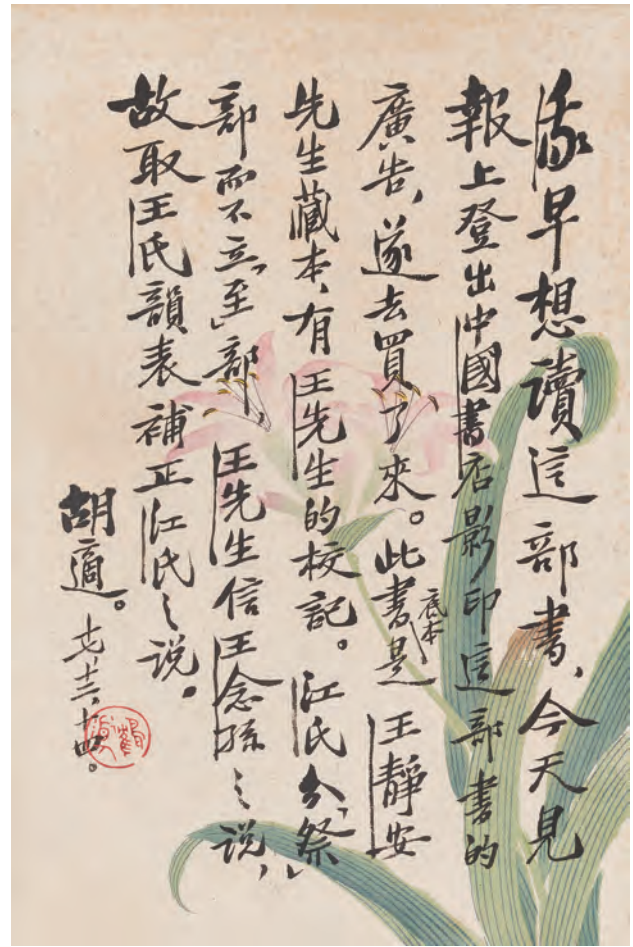 我早想讀這部書、今天見
報上登出中國書店影印這部書的
廣告、遂去買了來。此書底本是王靜安
先生藏本、有王先生的校記。江氏分「祭」
部而不立「至」部、王先生信王念孫之説，
故取王氏韻表補正江氏之説。
胡適。十七、十二、十四。